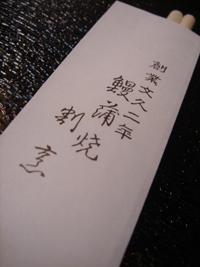 創業文久二年
鰻蒲焼
割烹